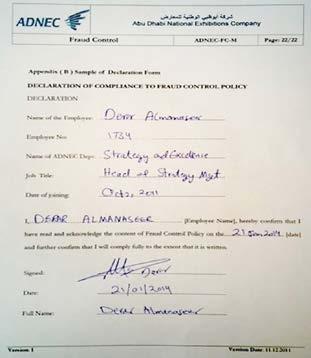 ADNEC
شركة أبوظبي الوطنية للمعارض
Abu Dhabi National Exhibitions Company
Fraud Control ADNEC-FC-M Page: 22/22
Appendix ( B ) Sample of Declaration Form
DECLARATION OF COMPLIANCE TO FRAUD CONTROL POLICY
DECLARATION
Name of the Employee: Derar Almanaseer
Employee No: 1734
Name of ADNEC Dept: Strategy and Excellence
Job Title: Head of Strategy Mgt
Date of joining: Oct 2, 2011
I, DERAR ALMANASEER [Employee Name], hereby confirm that I
have read and acknowledge the content of Fraud Control Policy on the 21 Jan 2014 [date]
and further confirm that I will comply fully to the extent that it is written.
Signed: Derar
Date: 21/01/2014
Full Name: Derar Almanaseer
Version: 1 Version Date: 11.12.2011